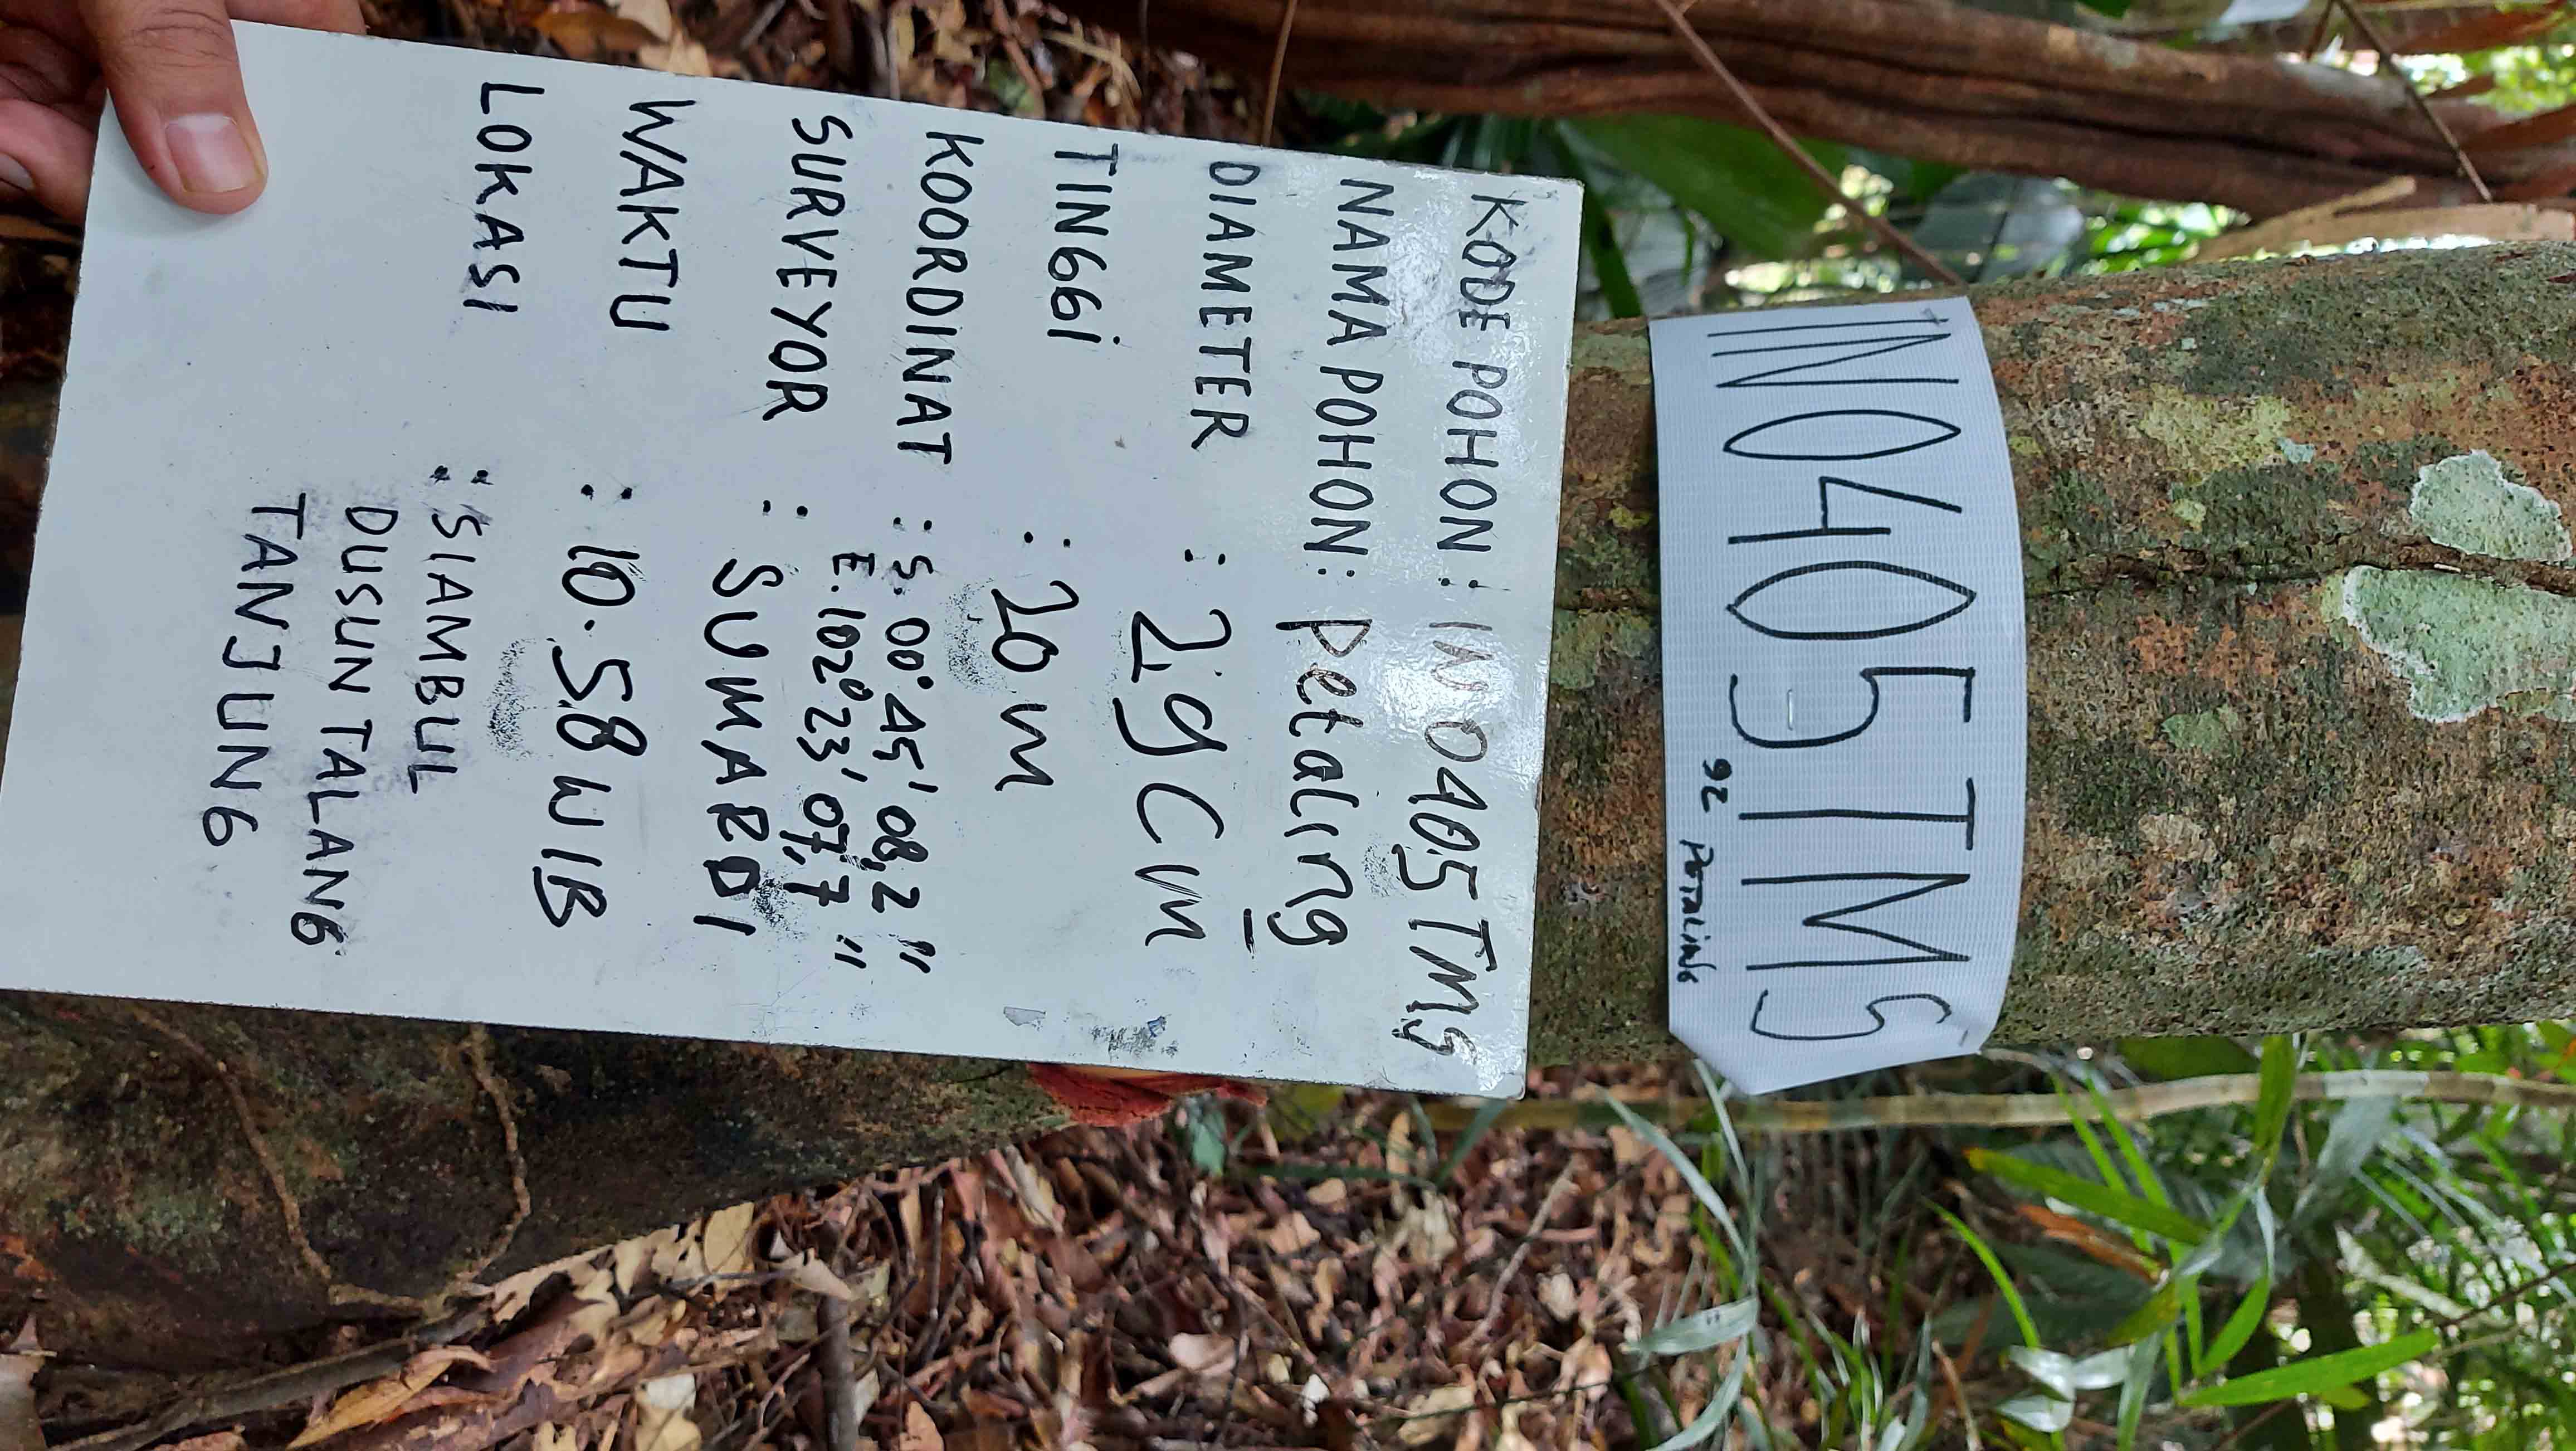 IN0405TMS
92 PETALING
KODE POHON : IN0405TMS
NAMA POHON : Petaling
DIAMETER : 29 Cm
TINGGI : 20 m
KOORDINAT : S. 00° 45' 08,2"
E. 102° 23' 07,7"
SURVEYOR : SUMARDI
WAKTU : 10.58 WIB
LOKASI : SIAMBUL
DUSUN TALANG
TANJUNG